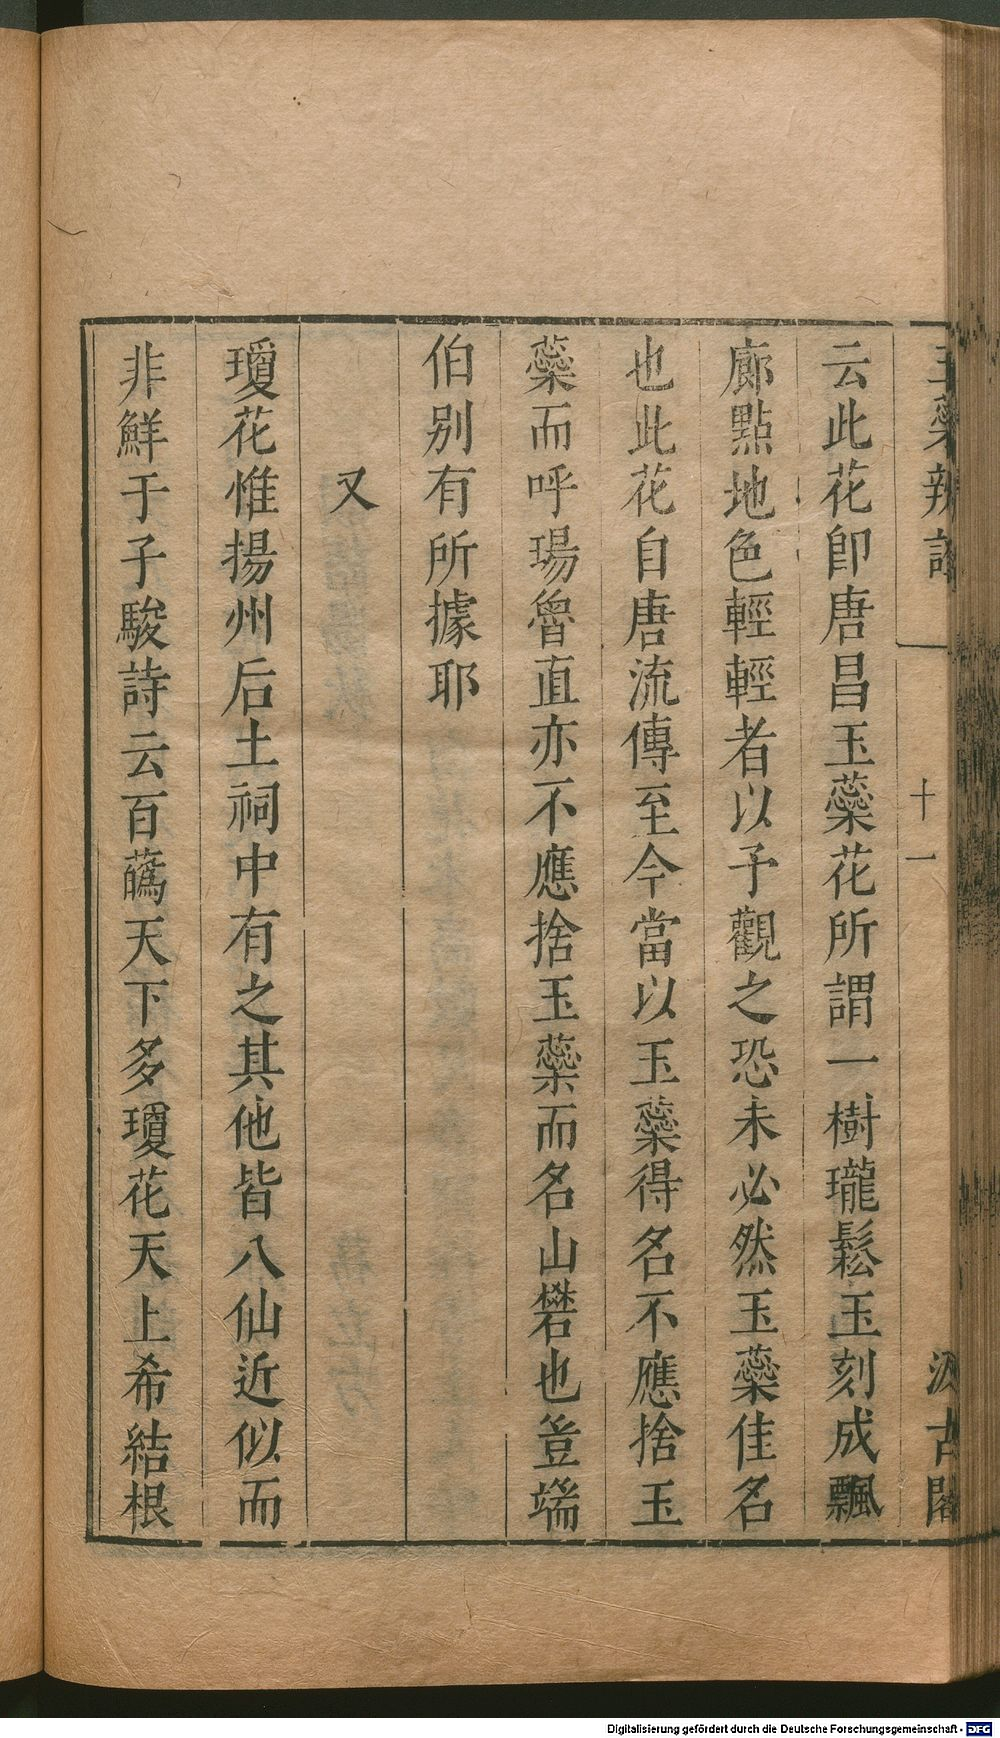 玉蘂辨證
十一
汲古閣
云此花卽唐昌玉蘂花所謂一樹瓏鬆玉刻成飄
廊點地色輕輕者以予觀之恐未必然玉蘂佳名
也此花自唐流傳至今當以玉蘂得名不應捨玉
蘂而呼瑒魯直亦不應捨玉蘂而名山礬也豈端
伯别有所據耶
又
瓊花惟揚州后土祠中有之其他皆八仙近似而
非鮮于子駿詩云百蘤天下多瓊花天上希結根
Digitalisierung gefördert durch die Deutsche Forschungsgemeinschaft - DFG